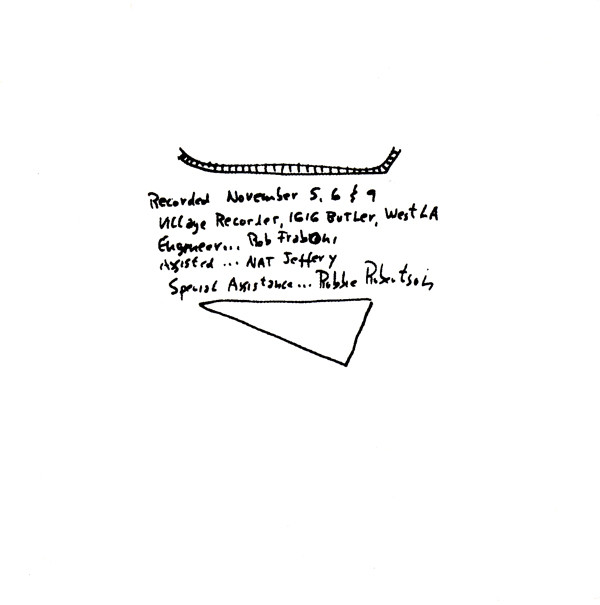 Recorded November 5, 6 & 9
Village Recorder, 1616 Butler, West LA
Engineer... Rob Fraboni
Assisted ... NAT Jeffery
Special Assistance... Robbie Robertson